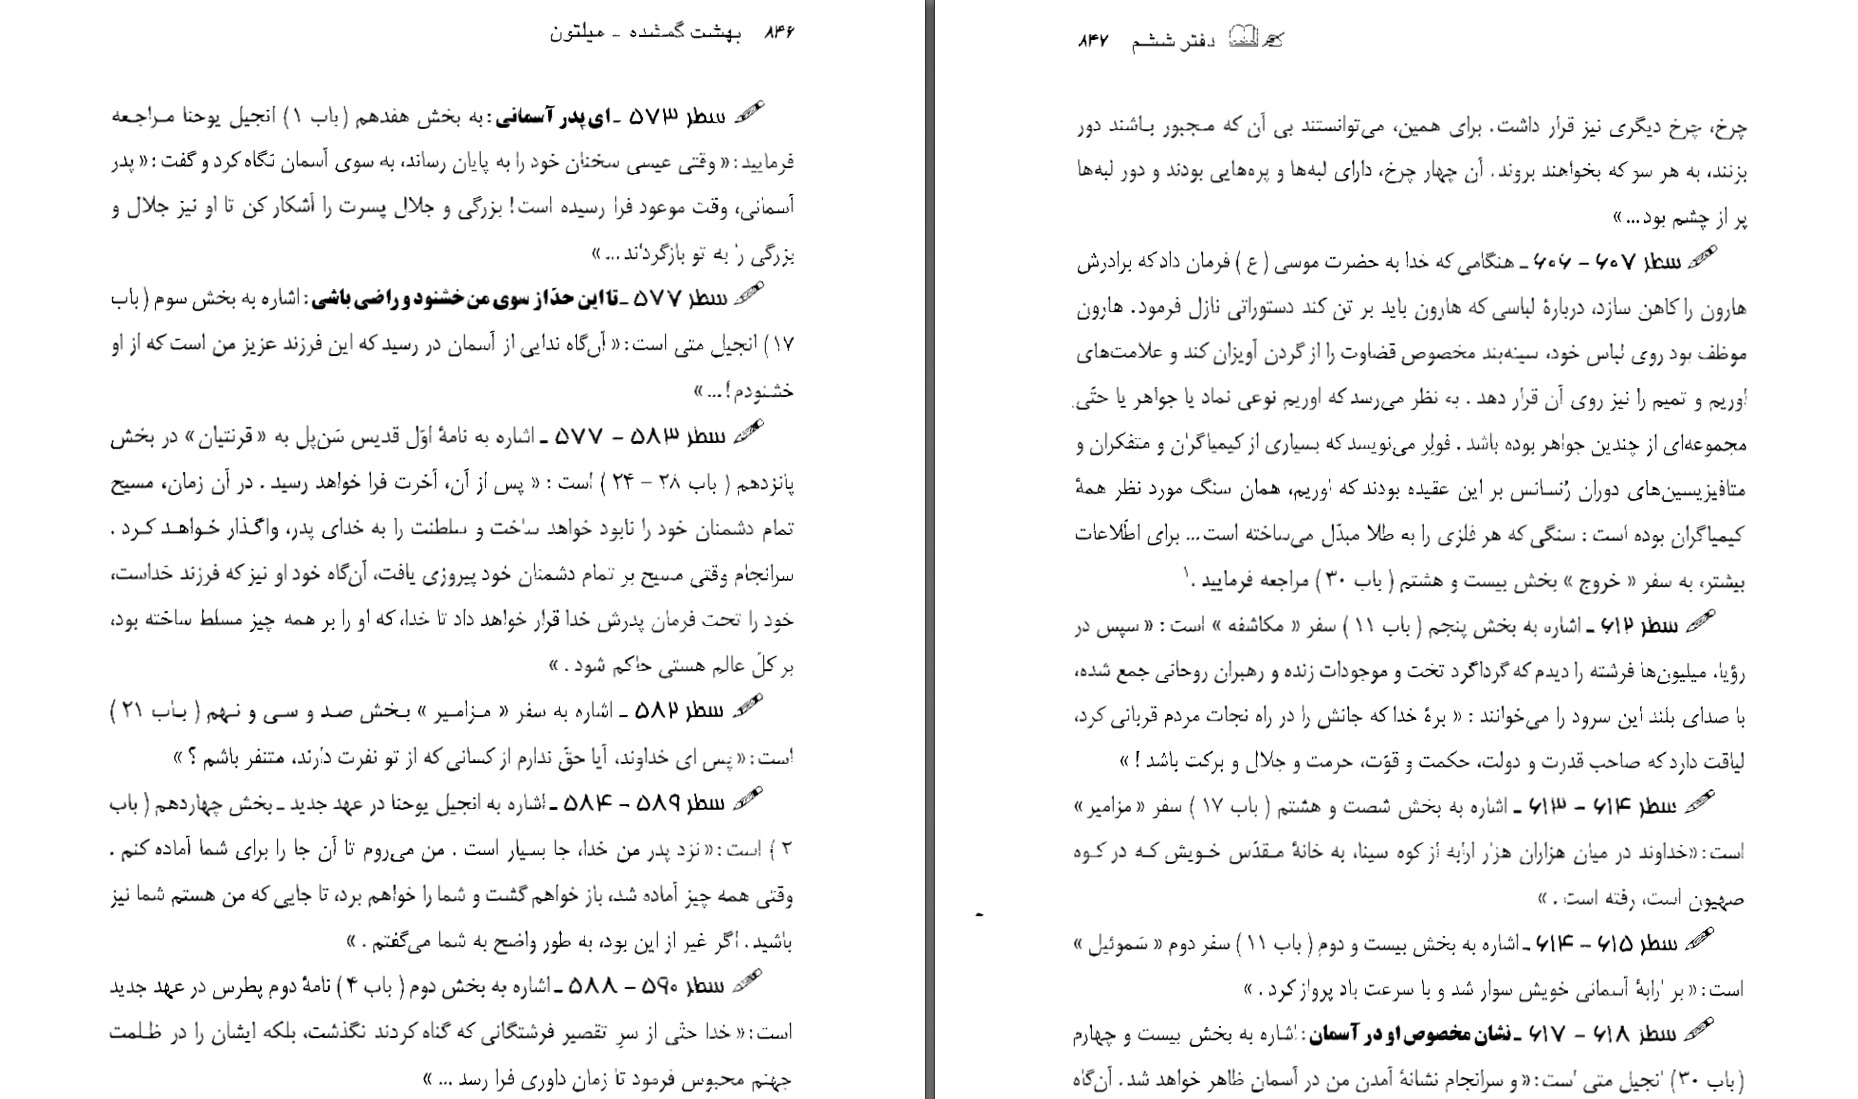 ۸۴۶ بهشت گمشده - میلتون
سطر ۵۷۳ - ای پدر آسمانی : به بخش هفدهم ( باب ۱ ) انجیل یوحنا مراجعه
فرمایید : « وقتی عیسی سخنان خود را به پایان رساند، به سوی آسمان نگاه کرد و گفت : « پدر
آسمانی، وقت موعود فرا رسیده است ! بزرگی و جلال پسرت را آشکار کن تا او نیز جلال و
بزرگی را به تو بازگرداند ... »
سطر ۵۷۷ - تا این حدّ از سوی من خشنود و راضی باشی : اشاره به بخش سوم ( باب
۱۷ ) انجیل متی است : « آن‌گاه ندایی از آسمان در رسید که این فرزند عزیز من است که از او
خشنودم ! ... »
سطر ۵۸۳ - ۵۷۷ - اشاره به نامهٔ اوّل قدیس سَن‌پل به « قرنتیان » در بخش
پانزدهم ( باب ۲۸ - ۲۴ ) است : « پس از آن، آخرت فرا خواهد رسید . در آن زمان، مسیح
تمام دشمنان خود را نابود خواهد ساخت و سلطنت را به خدای پدر، واگذار خواهد کرد .
سرانجام وقتی مسیح بر تمام دشمنان خود پیروزی یافت، آن‌گاه خود او نیز که فرزند خداست،
خود را تحت فرمان پدرش خدا قرار خواهد داد تا خدا، که او را بر همه چیز مسلط ساخته بود،
بر کلّ عالم هستی حاکم شود . »
سطر ۵۸۲ - اشاره به سفر « مزامیر » بخش صد و سی و نهم ( باب ۲۱ )
است : « پس ای خداوند، آیا حقّ ندارم از کسانی که از تو نفرت دارند، متنفر باشم ؟ »
سطر ۵۸۹ - ۵۸۴ - اشاره به انجیل یوحنا در عهد جدید - بخش چهاردهم ( باب
۲ ) است : « نزد پدر من خدا، جا بسیار است . من می‌روم تا آن جا را برای شما آماده کنم .
وقتی همه چیز آماده شد، باز خواهم گشت و شما را خواهم برد، تا جایی که من هستم شما نیز
باشید . اگر غیر از این بود، به طور واضح به شما می‌گفتم . »
سطر ۵۹۰ - ۵۸۸ - اشاره به بخش دوم ( باب ۴ ) نامهٔ دوم پطرس در عهد جدید
است : « خدا حتّی از سرِ تقصیر فرشتگانی که گناه کردند نگذشت، بلکه ایشان را در ظلمت
جهنم محبوس فرمود تا زمان داوری فرا رسد ... »
دفتر ششم ۸۴۷
چرخ، چرخ دیگری نیز قرار داشت. برای همین، می‌توانستند بی آن که مجبور باشند دور
بزنند، به هر سو که بخواهند بروند. آن چهار چرخ، دارای لبه‌ها و پره‌هایی بودند و دور لبه‌ها
پر از چشم بود... »
سطر ۶۰۷ - ۶۰۶ - هنگامی که خدا به حضرت موسی ( ع ) فرمان داد که برادرش
هارون را کاهن سازد، دربارهٔ لباسی که هارون باید بر تن کند دستوراتی نازل فرمود. هارون
موظف بود روی لباس خود، سینه‌بند مخصوص قضاوت را از گردن آویزان کند و علامت‌های
اوریم و تمیم را نیز روی آن قرار دهد . به نظر می‌رسد که اوریم نوعی نماد یا جواهر یا حتّی
مجموعه‌ای از چندین جواهر بوده باشد . فولِر می‌نویسد که بسیاری از کیمیاگران و متفکران و
متافیزیسین‌های دوران رُنسانس بر این عقیده بودند که اوریم، همان سنگ مورد نظر همهٔ
کیمیاگران بوده است : سنگی که هر فلزی را به طلا مبدّل می‌ساخته است... برای اطّلاعات
بیشتر، به سفر « خروج » بخش بیست و هشتم ( باب ۳۰ ) مراجعه فرمایید .۱
سطر ۶۱۲ - اشاره به بخش پنجم ( باب ۱۱ ) سفر « مکاشفه » است : « سپس در
رؤیا، میلیون‌ها فرشته را دیدم که گرداگرد تخت و موجودات زنده و رهبران روحانی جمع شده،
با صدای بلند این سرود را می‌خوانند : « برهٔ خدا که جانش را در راه نجات مردم قربانی کرد،
لیاقت دارد که صاحب قدرت و دولت، حکمت و قوّت، حرمت و جلال و برکت باشد ! »
سطر ۶۱۴ - ۶۱۳ - اشاره به بخش شصت و هشتم ( باب ۱۷ ) سفر « مزامیر »
است : «خداوند در میان هزاران هزار ارابه از کوه سینا، به خانهٔ مقدّس خویش که در کوه
صهیون است، رفته است . »
سطر ۶۱۵ - ۶۱۴ - اشاره به بخش بیست و دوم ( باب ۱۱ ) سفر دوم « سَموئیل »
است : « بر ارابهٔ آسمانی خویش سوار شد و با سرعت باد پرواز کرد . »
سطر ۶۱۸ - ۶۱۷ - نشان مخصوص او در آسمان : اشاره به بخش بیست و چهارم
( باب ۳۰ ) انجیل متی است : « و سرانجام نشانهٔ آمدن من در آسمان ظاهر خواهد شد . آن‌گاه